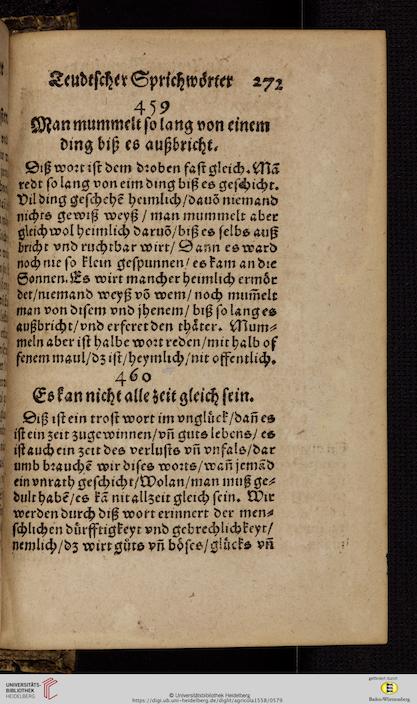 Teudtscher Sprichwörter 272
459
Man mummelt so lang von einem
ding biß es außbricht.
Diß wort ist dem droben fast gleich. Mā
redt so lang von eim ding biß es geschicht.
Vil ding geschehē heimlich/dauō niemand
nichts gewiß weyß/ man mummelt aber
gleichwol heimlich daruō/biß es selbs auß
bricht vnd ruchtbar wirt/ Dann es ward
noch nie so klein gespunnen/ es kam an die
Sonnen. Es wirt mancher heimlich ermör
det/niemand weyß vō wem/ noch mum̄elt
man von disem vnd jhenem/ biß so lang es
außbricht/vnd erferet den thäter. Mum-
meln aber ist halbe wort reden/mit halb of
fenem maul/dz ist/heymlich/nit offentlich.
460
Es kan nicht alle zeit gleich sein.
Diß ist ein trost wort im vnglück/dan̄ es
ist ein zeit zugewinnen/vn̄ guts lebens/ es
ist auch ein zeit des verlusts vn̄ vnfals/dar
umb brauchē wir dises worts/wan̄ jemād
ein vnrath geschicht/Wolan/man muß ge-
dult habē/es kā nit allzeit gleich sein. Wir
werden durch diß wort erinnert der men-
schlichen dürfftigkeyt vnd gebrechlichkeyt/
nemlich/dz wirt gůts vn̄ böses/glücks vn̄
UNIVERSITÄTS-
BIBLIOTHEK
HEIDELBERG
© Universitätsbibliothek Heidelberg
https://digi.ub.uni-heidelberg.de/diglit/agricola1558/0579
gefördert durch
Baden-Württemberg